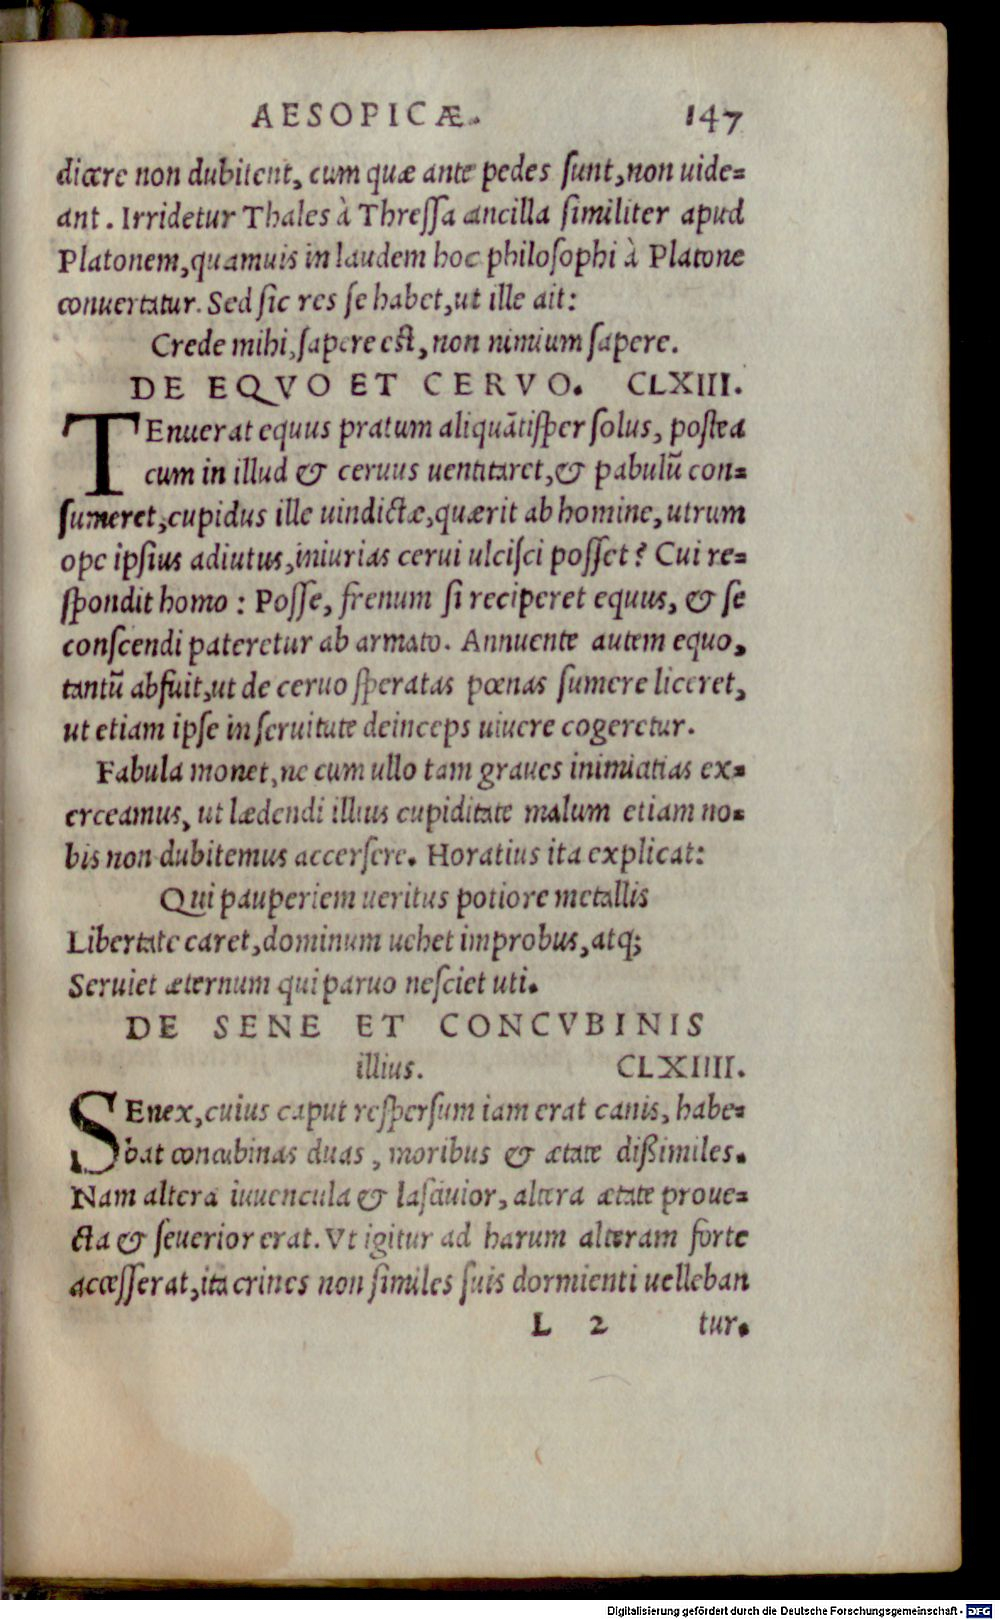 AESOPICÆ. 147
dicere non dubitent, cum quæ ante pedes ſunt, non uide=
ant. Irridetur Thales à Threſſa ancilla ſimiliter apud
Platonem, quamuis in laudem hoc philoſophi à Platone
conuertatur. Sed ſic res ſe habet, ut ille ait:
Crede mihi, ſapere eſt, non nimium ſapere.
DE EQVO ET CERVO. CLXIII.
TEnuerat equus pratum aliquãtiſper ſolus, poſtea
cum in illud & ceruus uentitaret, & pabulũ con=
ſumeret, cupidus ille uindictæ, quærit ab homine, utrum
ope ipſius adiutus, iniurias cerui ulciſci poſſet? Cui re=
ſpondit homo: Poſſe, frenum ſi reciperet equus, & ſe
conſcendi pateretur ab armato. Annuente autem equo,
tantũ abfuit, ut de ceruo ſperatas pœnas ſumere liceret,
ut etiam ipſe in ſeruitute deinceps uiuere cogeretur.
Fabula monet, ne cum ullo tam graues inimicitias ex=
erceamus, ut lædendi illius cupiditate malum etiam no=
bis non dubitemus accerſere. Horatius ita explicat:
Qui pauperiem ueritus potiore metallis
Libertate caret, dominum uehet improbus, atq;
Seruiet æternum qui paruo neſciet uti.
DE SENE ET CONCVBINIS
illius. CLXIIII.
SEnex, cuius caput reſperſum iam erat canis, habe=
bat concubinas duas, moribus & ætate dißimiles.
Nam altera iuuencula & laſciuior, altera ætate proue=
cta & ſeuerior erat. Vt igitur ad harum alteram forte
acceſſerat, ita crines non ſimiles ſuis dormienti uelleban
L 2 tur.
Digitalisierung gefördert durch die Deutsche Forschungsgemeinschaft - DFG